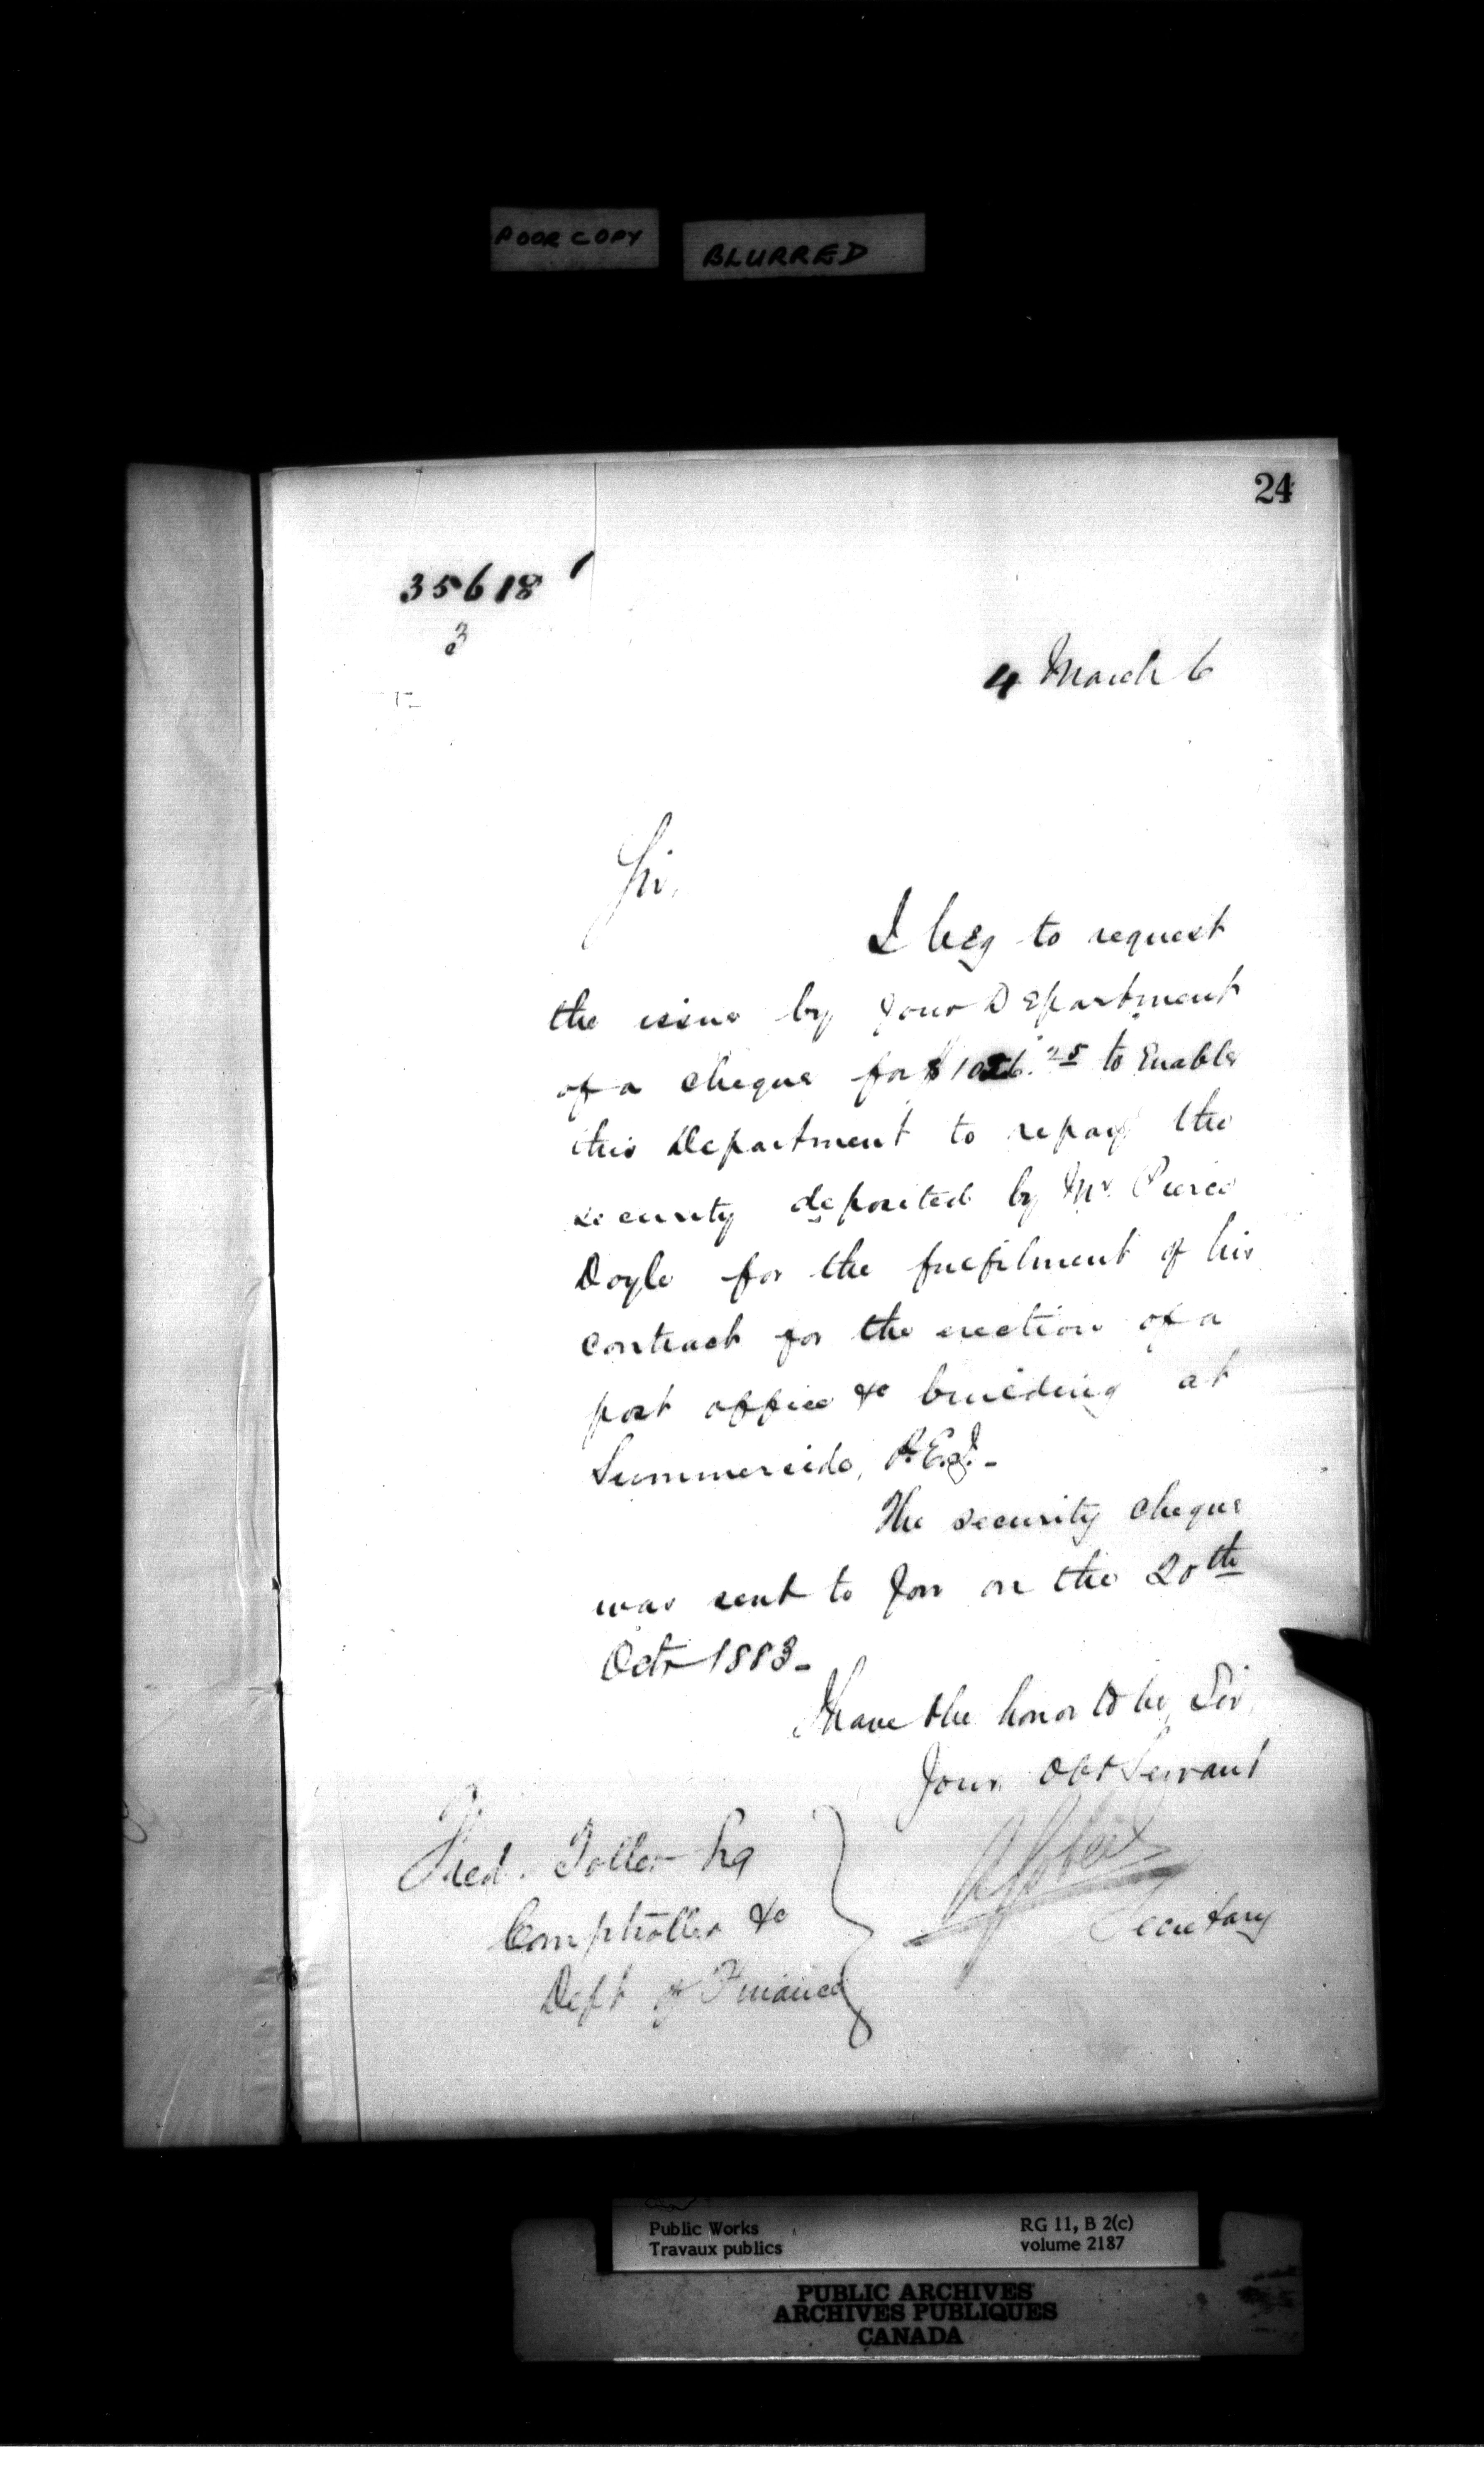 POOR COPY
BLURRED
24
35618
3
4 March 6
Sir,
I beg to request
the issue by your Department
of a cheque for $ 25 to Enable
this Department to repay the
security deposited by Mr. Pierce
Doyle for the fulfilment of his
contract for the erection of a
post office &c building at
Summerside, P.E.I. -
The security cheque
was sent to you on the 20th
Octr 1883 -
I have the honor to be, Sir,
Your Obt Servant
Fred. Toller Esq
Comptroller &c
Dept of Finance
Secretary
Public Works
Travaux publics
RG 11, B 2(c)
volume 2187
PUBLIC ARCHIVES
ARCHIVES PUBLIQUES
CANADA